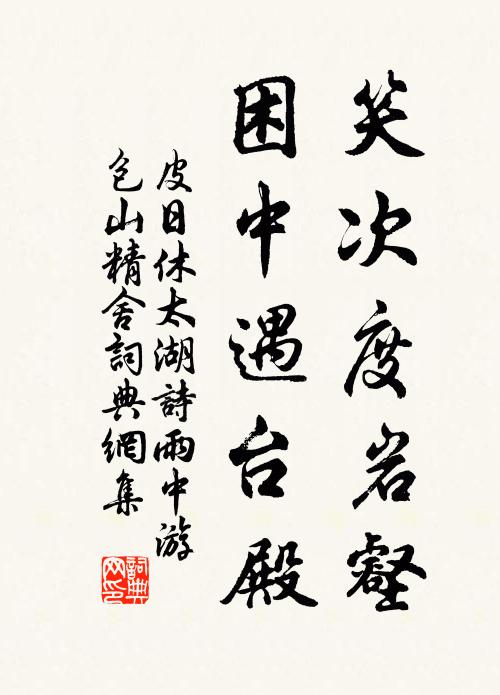 笑次度岩壑
困中遇台殿
皮日休太湖詩雨中游
包山精舍詞典網集
詞典
网印